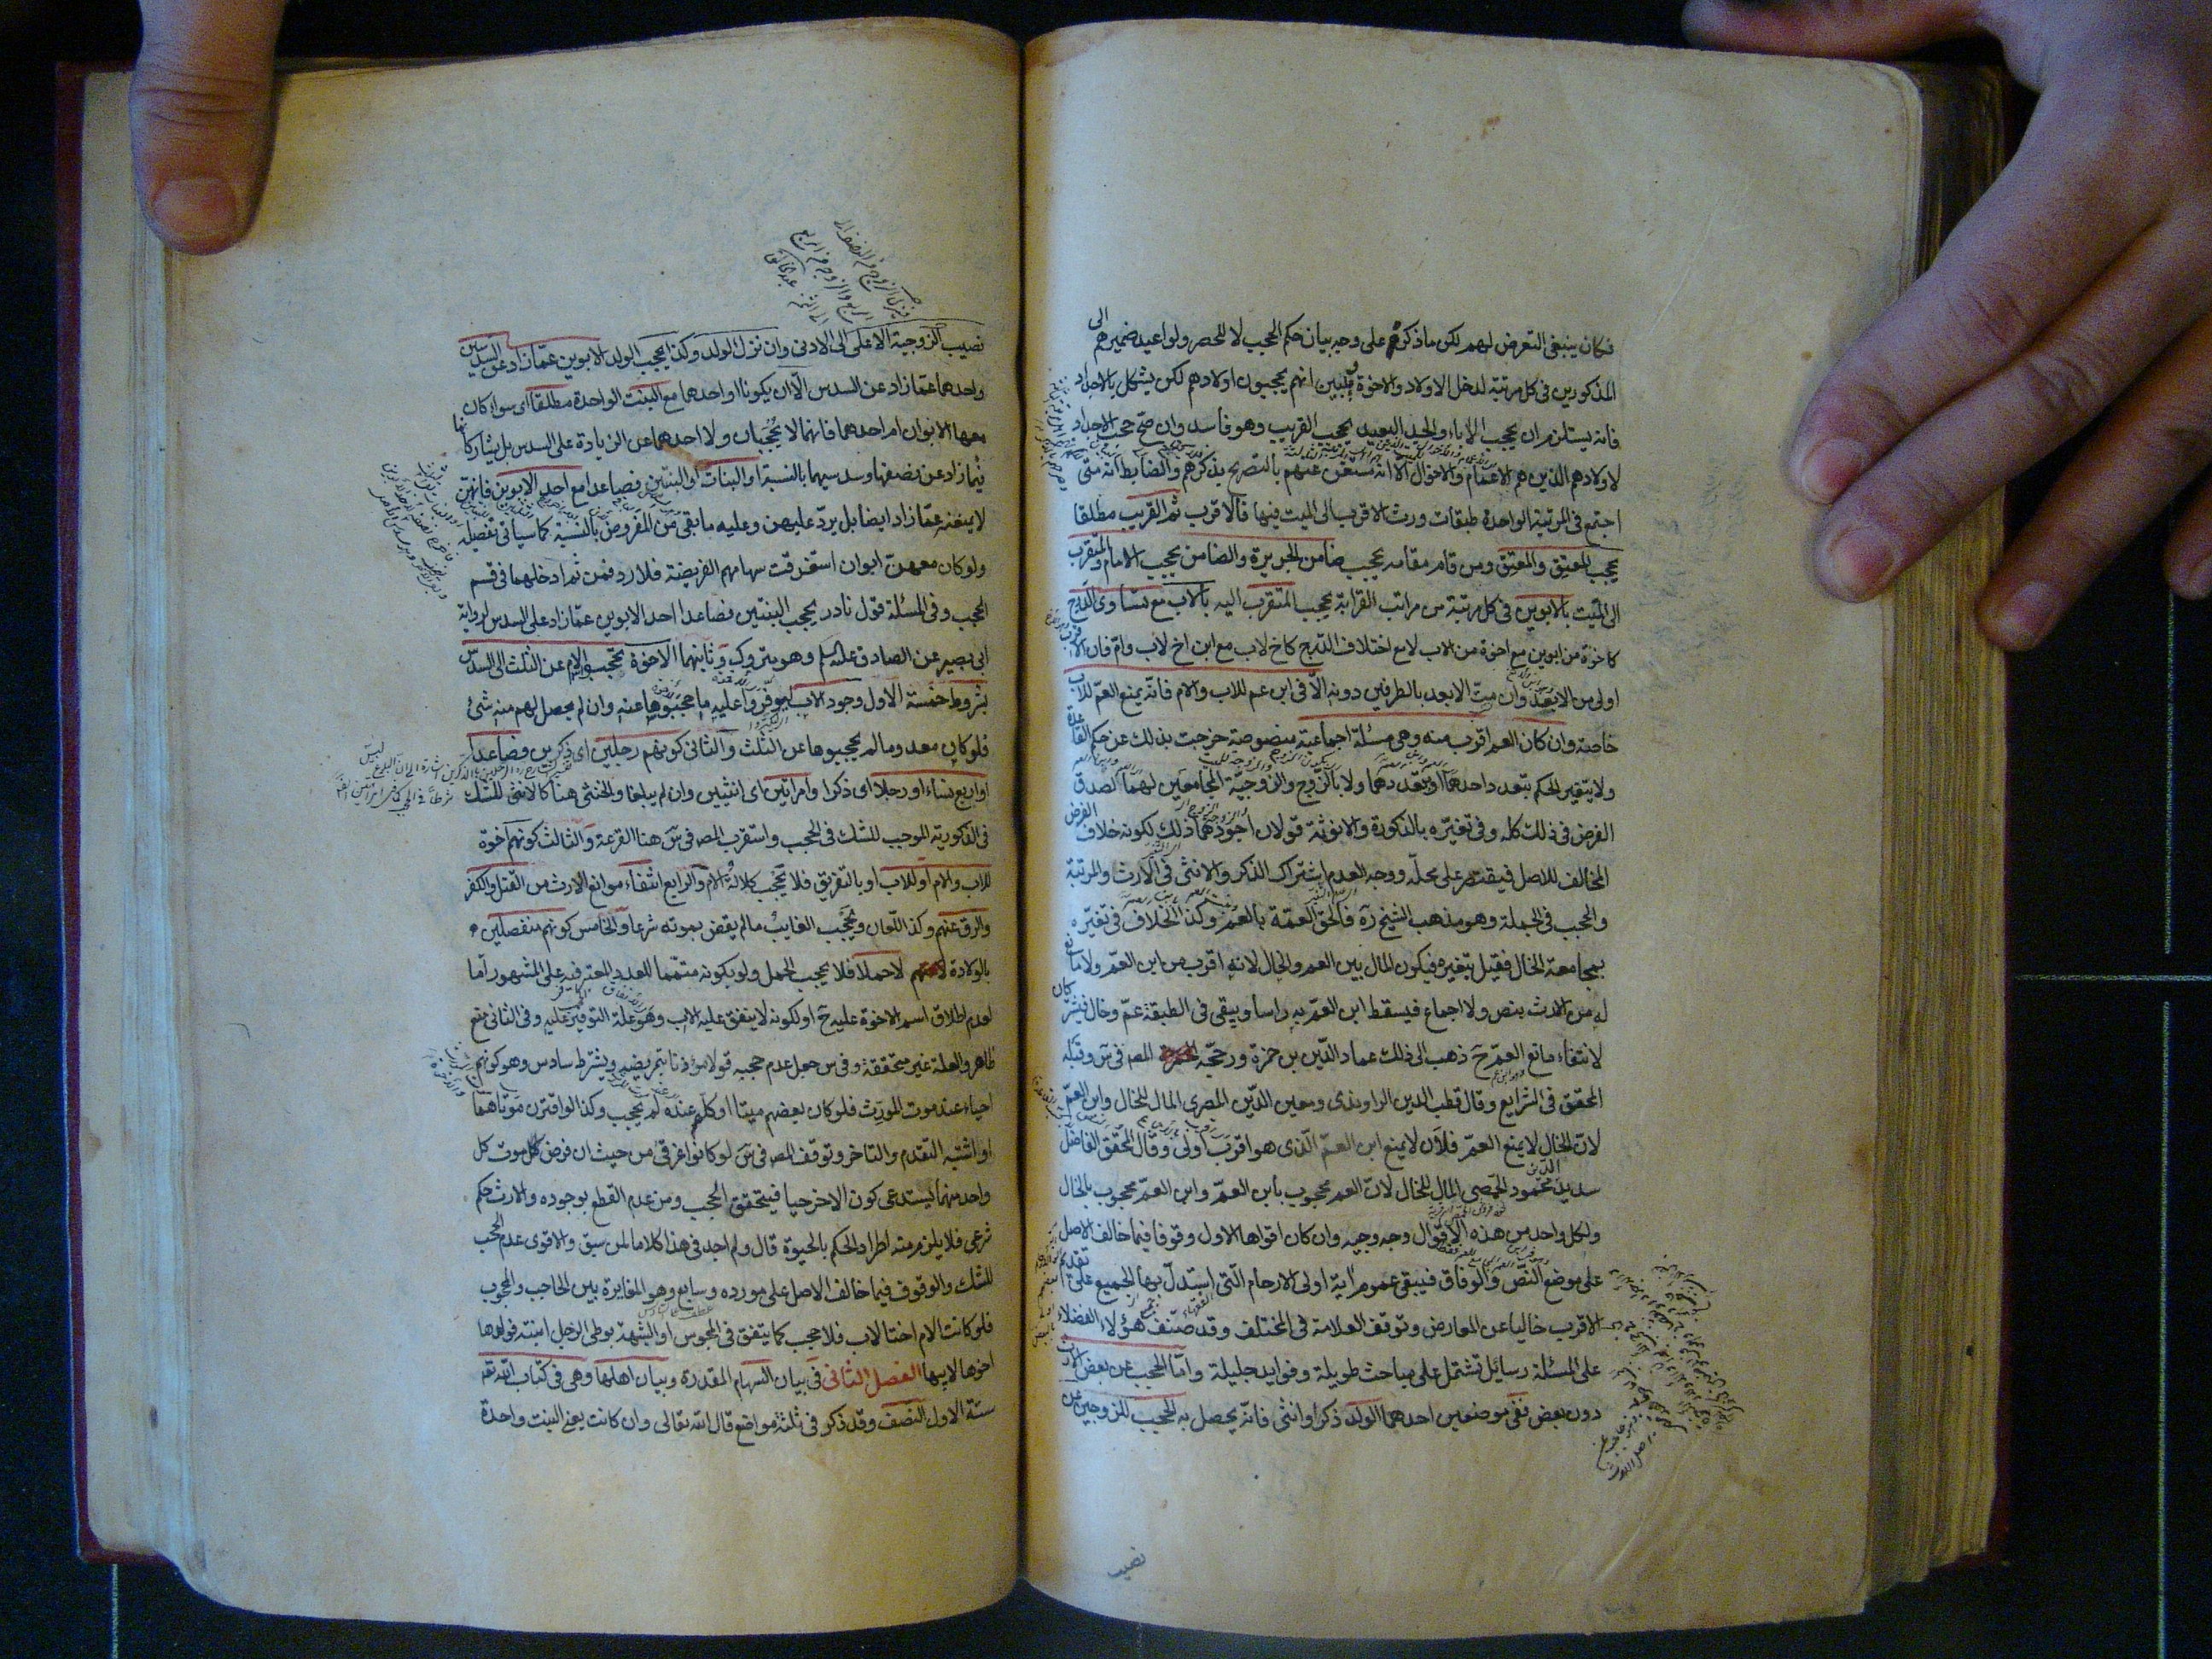 فكان ينبغي التعرض لهم لكن ما ذكره على وجه بيان حكم الحجب لا للحصر ولو اعيد ضميرهم الى
المذكورين في كل مرتبة لدخل الاولاد والاخوة وتبين انهم يحجبون اولادهم لكن يشكل بالاجداد
فانه يستلزم ان يحجب الاباء والجد البعيد يحجب القريب وهو فاسد وان صح حجب الاجداد
لاولادهم الذين هم الاعمام والاخوال الا انه مستغن عنهم بالتصريح بذكرهم والضابط انه متى
اجتمع في المرتبة الواحدة طبقات ورث الاقرب الى الميت فيها فالاقرب ثم القريب مطلقا
يحجب المعتق والمعتق ومن قام مقامه يحجب ضامن الجريرة والضامن يحجب الامام والمتقرب
الى الميت بالابوين في كل مرتبة من مراتب القرابة يحجب المتقرب اليه بالاب مع تساوى الدرج
كاخوة من ابوين مع اخوة من الاب لا مع اختلاف الدرج كاخ لاب مع ابن اخ لاب وام فان الاقرب
اولى من الابعد وان متّ الابعد بالطرفين دونه الا في ابن عم للاب والام فانه يمنع العم للاب
خاصة وان كان العم اقرب منه وهي مسئلة اجماعية منصوصة خرجت بذلك عن حكم القاعدة
ولا يتغير الحكم بتعدد احدهما او تعددهما ولا بالزوج والزوجة المجامعين لهما لصدق
الفرض في ذلك كله وفي تغيره بالذكورة والانوثة قولان اجودهما ذلك لكونه خلاف الفرض
المخالف للاصل فيقتصر على محله ووجه العدم اشتراك الذكر والانثى في الارث والمرتبة
والحجب في الجملة وهو مذهب الشيخ ره فالحق العمة بالعم وكذا الخلاف في تغيره
بمجامعة الخال فقيل بتغيره فيكون المال بين العم والخال لانه اقرب من ابن العم ولا مانع
له من الارث بنص ولا اجماع فيسقط ابن العم به راسا ويبقى في الطبقة عم وخال فيشتركان
لانتفاء مانع العم ح ذهب الى ذلك عماد الدين بن حمزة ورجحه المص في س وقبله
المحقق في الشرايع وقال قطب الدين الراوندى ومعين الدين المصرى المال للخال وابن العم
لان الخال لا يمنع العم فلان لا يمنع ابن العم الذى هو اقرب اولى وقال المحقق الفاضل
سديد الدين محمود الحمصى المال للخال لان العم محجوب بابن العم وابن العم محجوب بالخال
ولكل واحد من هذه الاقوال وجه وجيه وان كان اقواها الاول وقوفا فيما خالف الاصل
على موضع النص والوفاق فيبقى عموم اية اولى الارحام التى استدل بها الجميع على تقديم
الاقرب خاليا عن المعارض وتوقف العلامة في المختلف وقد صنف هؤلاء الفضلاء
على المسئلة رسائل تشتمل على مباحث طويلة وفوايد جليلة واما الحجب عن بعض الارث
دون بعض ففى موضعين احدهما الولد ذكرا او انثى فانه يحصل به الحجب للزوجين عن
نصيب
نصيب الزوجية الاعلى الى الادنى وان نزل الولد وكذا يحجب الولد الابوين عما زاد عن السدسين
واحدهما عما زاد عن السدس الا ان يكونا او احدهما مع البنت الواحدة مطلقا اى سواء كان
معها الابوان ام احدهما فانهما لا يحجبان ولا احدهما عن الزيادة على السدس بل يشاركانها
فيما زاد عن نصفها وسدسيهما بالنسبة او البنات او البنتين فصاعدا مع احد الابوين فانهن
لا يمنعنه عما زاد ايضا بل يرد عليهن وعليه ما بقى من المفروض بالنسبة كما سياتى تفصيله
ولو كان معهن ابوان استغرقت سهامهم الفريضة فلا رد فمن ثم ادخلهما في قسم
الحجب وفي المسئلة قول نادر بحجب البنتين فصاعدا احد الابوين عما زاد على السدس لرواية
ابى بصير عن الصادق عليه السلم وهو متروك وثانيهما الاخوة تحجب الام عن الثلث الى السدس
بشروط خمسة الاول وجود الاب ليوفروا عليه ما حجبوها عنه وان لم يحصل لهم منه شئ
فلو كان معدوما لم يحجبوها عن الثلث والثانى كونهم رجلين اى ذكرين فصاعدا
او اربع نساء او رجلا اى ذكرا وامراتين اى انثيين وان لم يبلغا والخنثى هنا كالانثى للشك
في الذكورية الموجب للشك في الحجب واستقرب المص في س هنا القرعة والثالث كونهم اخوة
للاب والام او للاب او بالتفريق فلا تحجب كلالة الام والرابع انتفاء موانع الارث من القتل والكفر
والرق عنهم وكذا اللعان ويحجب الغايب ما لم يقض بموته شرعا والخامس كونهم منفصلين
بالولادة لا حملا فلا يحجب الحمل ولو بكونه متمما للعدد المعتبر فيه على المشهور اما
لعدم اطلاق اسم الاخوة عليه ح او لكونه لا ينفق عليه الاب وهو علة التوفير عليه وفي الثانى منع
ظاهر والعلة غير متحققة وفي س جعل عدم حجبه قولا مؤذنا بتمريضه ويشترط سادس وهو كونهم
احياء عند موت المورث فلو كان بعضهم ميتا او كلهم عنده لم يحجب وكذا لو اقترن موتاهما
او اشتبه التقدم والتاخر وتوقف المص في س لو كانوا غرقى من حيث ان فرض كل موت كل
واحد منهما يستدعى كون الاخر حيا فيتحقق الحجب ومن عدم القطع بوجوده والارث حكم
شرعى فلا يلزم منه اطراد الحكم بالحيوة قال ولم اجد في هذا كلاما لمن سبق والاقوى عدم الحجب
للشك والوقوف فيما خالف الاصل على مورده وسابع وهو المغايرة بين الحاجب والمحجوب
فلو كانت الام اختا لاب فلا حجب كما يتفق في المجوس او الشبهة بوطى الرجل ابنته فولدها
اخوها لابيها الفصل الثانى في بيان السهام المقدرة وبيان اهلها وهى في كتاب الله تع
ستة الاول النصف وقد ذكر في ثلثة مواضع قال الله تعالى وان كانت يعنى البنت واحدة